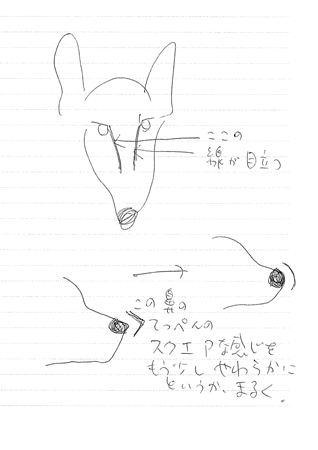 ここの
線が目立つ
この鼻の
てっぺんの
スクエアな感じを
もう少しやわらかに
というか、まるく。